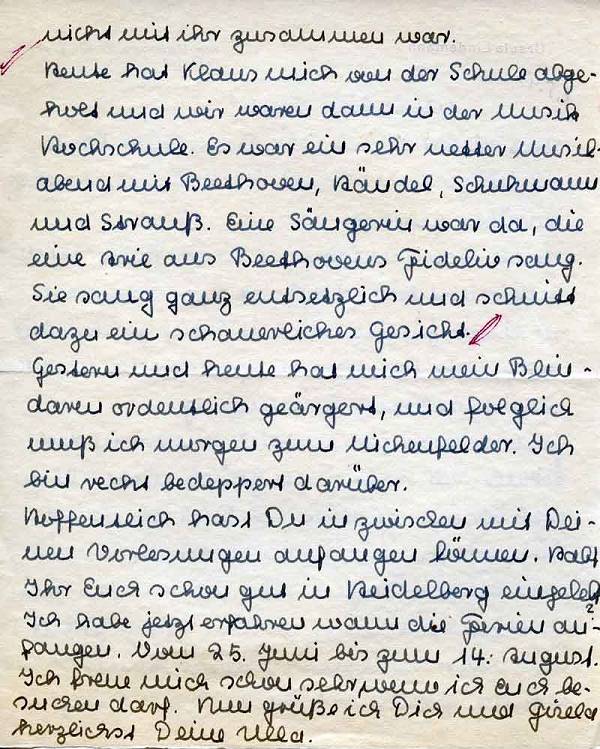 nicht mit ihr zusammen war.
Heute hat Klaus mich von der Schule abge-
holt und wir waren dann in der Musik
Hochschule. Es war ein sehr netter Musik-
abend mit Beethoven, Händel, Schuhmann
und Strauß. Eine Sängerin war da, die
eine Arie aus Beethovens Fidelio sang.
Sie sang ganz entsetzlich und schnitt
dazu ein schauerliches Gesicht.
Gestern und heute hat mich mein Blin-
darm ordentlich geärgert, und folglich
muß ich morgen zum Michenfelder. Ich
bin recht bedeppert darüber.
Hoffentlich hast Du inzwischen mit Dei-
nen Vorlesungen anfangen können. Habt
Ihr Euch schon gut in Heidelberg eingelebt?
Ich habe jetzt erfahren wann die Ferien an-
fangen. Vom 25. Juni bis zum 14. August.
Ich freue mich schon sehr wenn ich Euch be-
suchen darf. Nun grüße ich Dich und Gisela
herzlichst Deine Ulla.